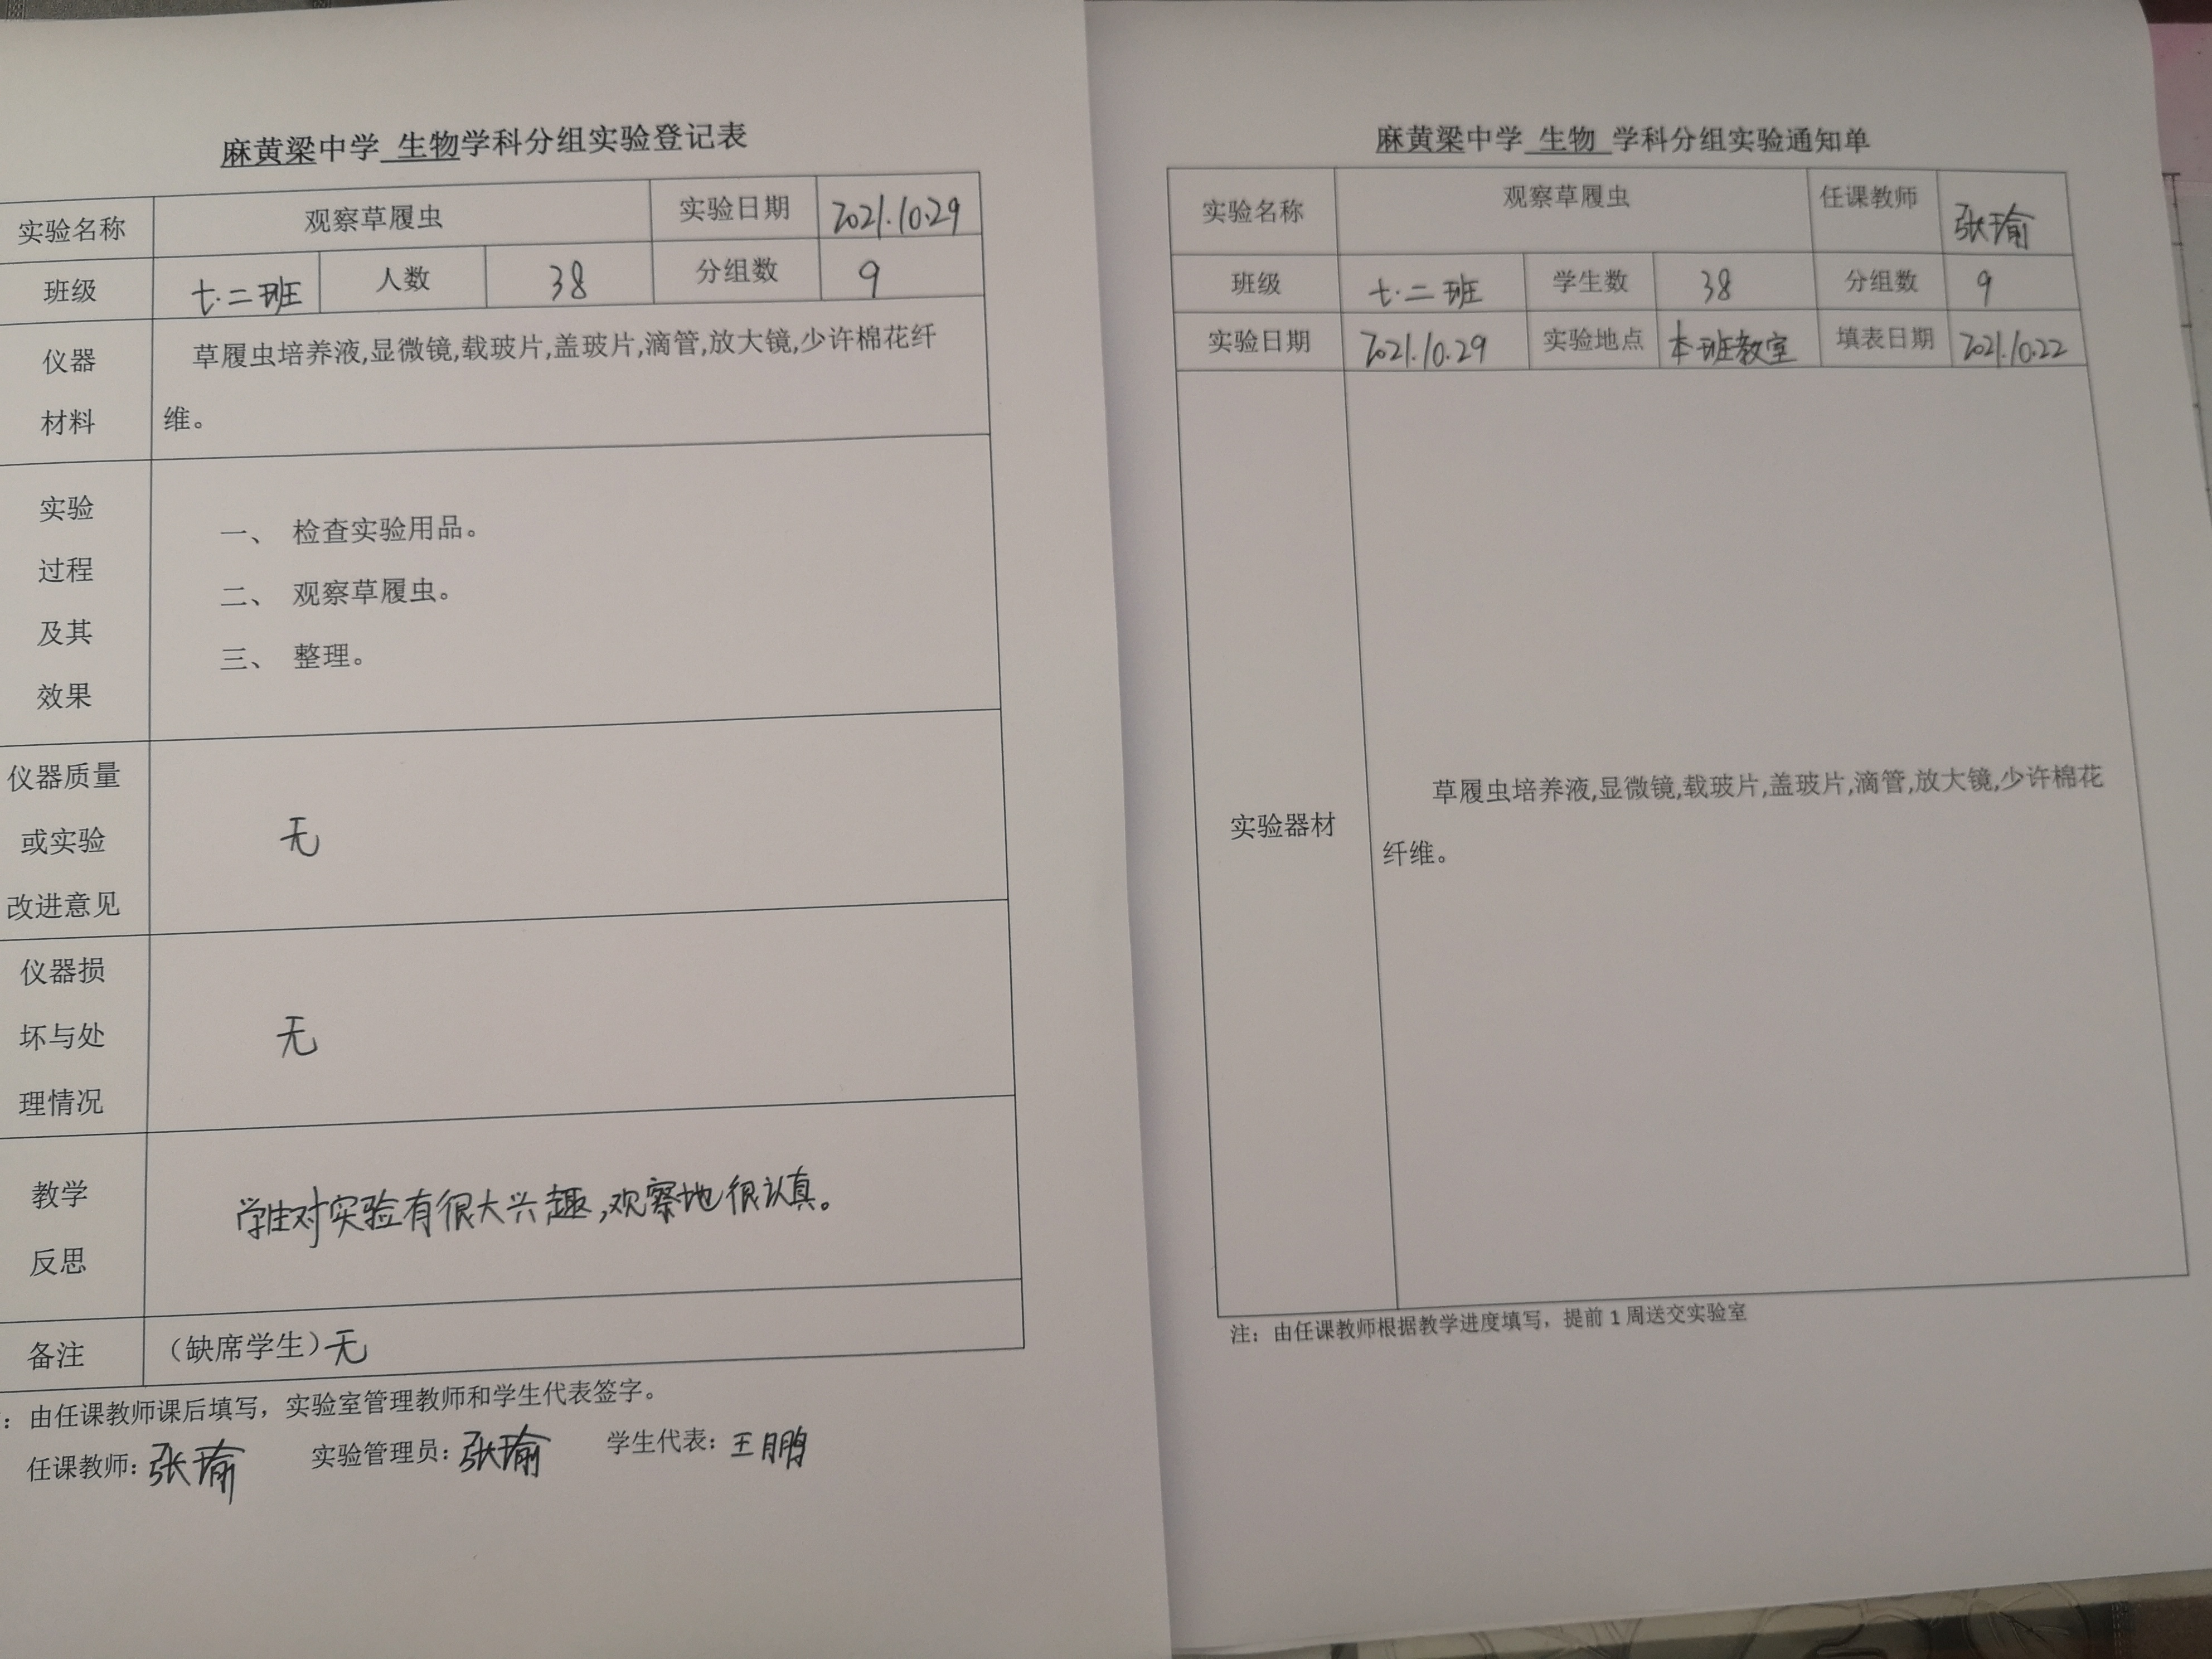 麻黄梁中学 生物学科分组实验登记表
实验名称 观察草履虫 实验日期 2021.10.29
班级 七.二班 人数 38 分组数 9
仪器
材料
草履虫培养液,显微镜,载玻片,盖玻片,滴管,放大镜,少许棉花纤
维。
实验
过程
及其
效果
一、 检查实验用品。
二、 观察草履虫。
三、 整理。
仪器质量
或实验
改进意见
无
仪器损
坏与处
理情况
无
教学
反思
学生对实验有很大兴趣,观察地很认真。
备注 (缺席学生)无
:由任课教师课后填写，实验室管理教师和学生代表签字。
任课教师:张瑜 实验管理员:张瑜 学生代表:王鹏
麻黄梁中学 生物 学科分组实验通知单
实验名称 观察草履虫 任课教师 张瑜
班级 七.二班 学生数 38 分组数 9
实验日期 2021.10.29 实验地点 本班教室 填表日期 2021.10.22
实验器材
草履虫培养液,显微镜,载玻片,盖玻片,滴管,放大镜,少许棉花
纤维。
注：由任课教师根据教学进度填写，提前1周送交实验室